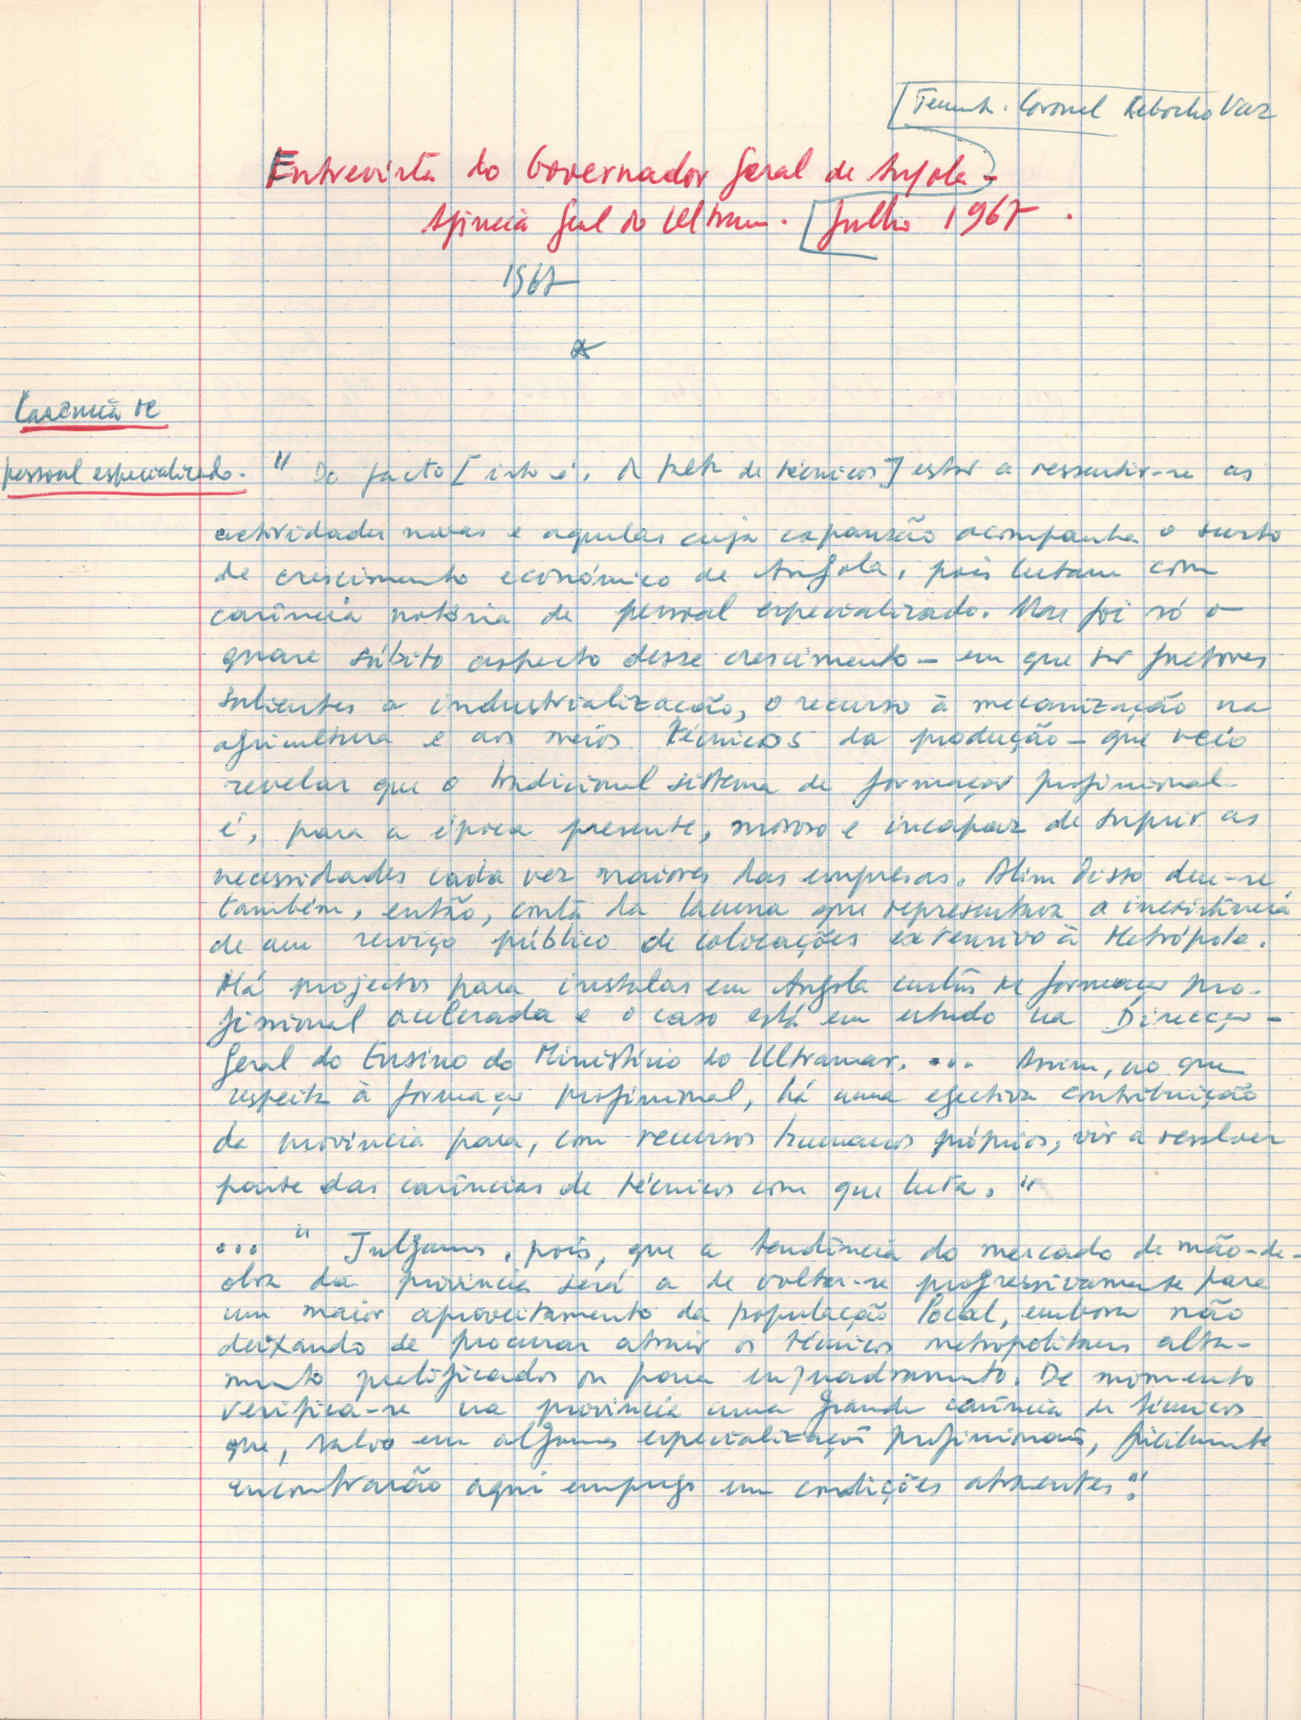 Tenente-Coronel Rebocho Vaz
Entrevista do Governador Geral de Angola -
Agência Geral do Ultramar. Julho 1967.
1967
Carência de
pessoal especializado.
" De facto [isto é, a falta de técnicos] estão a ressentir-se as
actividades novas e aquelas cuja expansão acompanha o surto
de crescimento económico de Angola, pois lutam com
carência notória de pessoal especializado. Mas foi só o
quase súbito aspecto desse crescimento - em que são factores
salientes a industrialização, o recurso à mecanização na
agricultura e aos meios técnicos da produção - que veio
revelar que o tradicional sistema de formação profissional
é, para a época presente, moroso e incapaz de suprir as
necessidades cada vez maiores das empresas. Além disso deu-se
também, então, conta da lacuna que representava a inexistência
de um serviço público de colocações extensivo à Metrópole.
Há projectos para instalar em Angola centros de formação pro-
fissional acelerada e o caso está em estudo na Direcção-
Geral do Ensino do Ministério do Ultramar. ... Assim, no que
respeita à formação profissional, há uma efectiva contribuição
da província para, com recursos humanos próprios, vir a resolver
parte das carências de técnicos com que luta. "
... " Julgamos, pois, que a tendência do mercado de mão-de-
obra da província será a de voltar-se progressivamente para
um maior aproveitamento da população local, embora não
deixando de procurar atrair os técnicos metropolitanos alta-
mente qualificados ou para enquadramento. De momento
verifica-se na província uma grande carência de técnicos
que, salvo em algumas especializações profissionais, facilmente
encontrarão aqui emprego em condições atraentes."